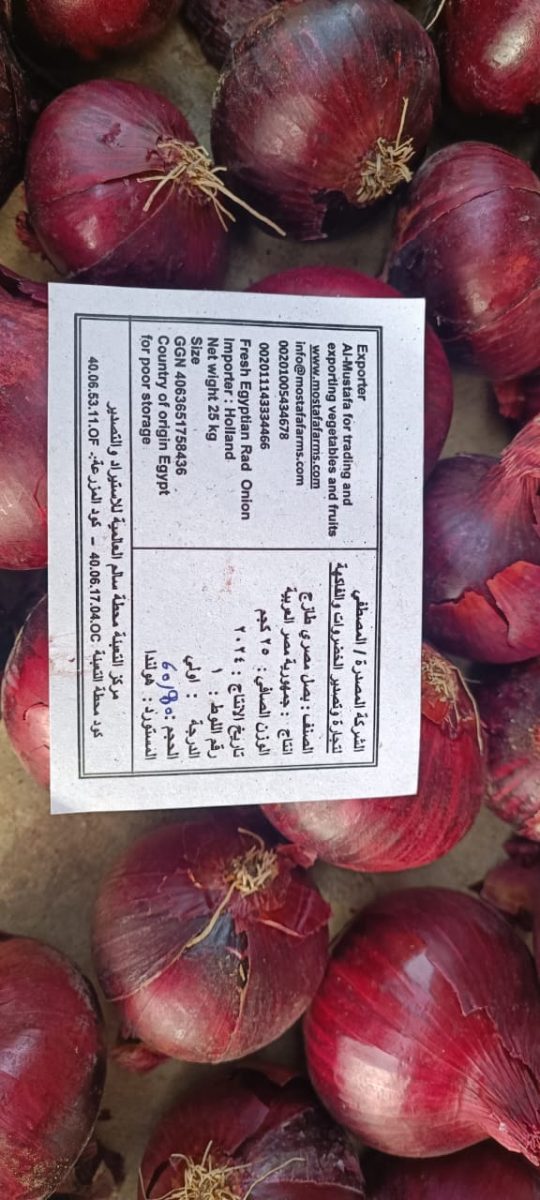 Exporter
Al-Mustafa for trading and
exporting vegetables and fruits
www.mostafafarms.com
info@mostafafarms.com
00201005434678
00201143334466
Fresh Egyptian Rad Onion
Importer : Holland
Net wight 25 kg
Size
GGN 4063651758436
Country of origin Egypt
for poor storage
الشركة المصدرة / المصطفي
لتجارة وتصدير الخضروات والفاكهة
الصنف : بصل مصري طازج
انتاج : جمهورية مصر العربية
الوزن الصافي : ٢٥ كجم
تاريخ الانتاج : ٢٠٢٤
رقم اللوط : ١
الدرجة : اولي
الحجم :
المستورد : هولندا
مركز التعبئة محطة سالم العالمية للاستيراد والتصدير
كود محطة التعبئة 40.06.17.04.OC – كود المزرعة: 40.06.53.11.OF